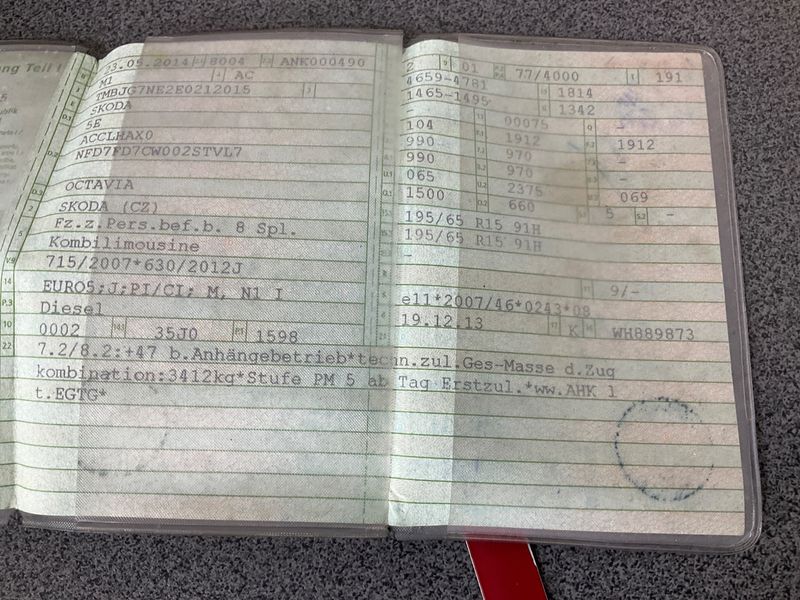 ng Teil I
23.05.2014 8004 ANK000490
M1 AC
TMBJG7NE2E0212015
SKODA
5E
ACCLHAX0
NFD7FD7CW002STVL7
OCTAVIA
SKODA (CZ)
Fz.z.Pers.bef.b. 8 Spl.
Kombilimousine
715/2007*630/2012J
EURO5;J;PI/CI; M, N1 I
Diesel
0002 35J0 P.1 1598
7.2/8.2:+47 b.Anhängebetrieb*techn.zul.Ges-Masse d.Zug
kombination:3412kg*Stufe PM 5 ab Tag Erstzul.*ww.AHK l
t.EGTG*
2 01 77/4000 191
4659-4781 1814
1465-1495 1342
104 00075 -
990 1912 1912
990 970 -
065 970 -
1500 2375 069
195/65 R15 91H 660 5 -
195/65 R15 91H
-
9/-
e11*2007/46*0243*08
19.12.13 K WH889873